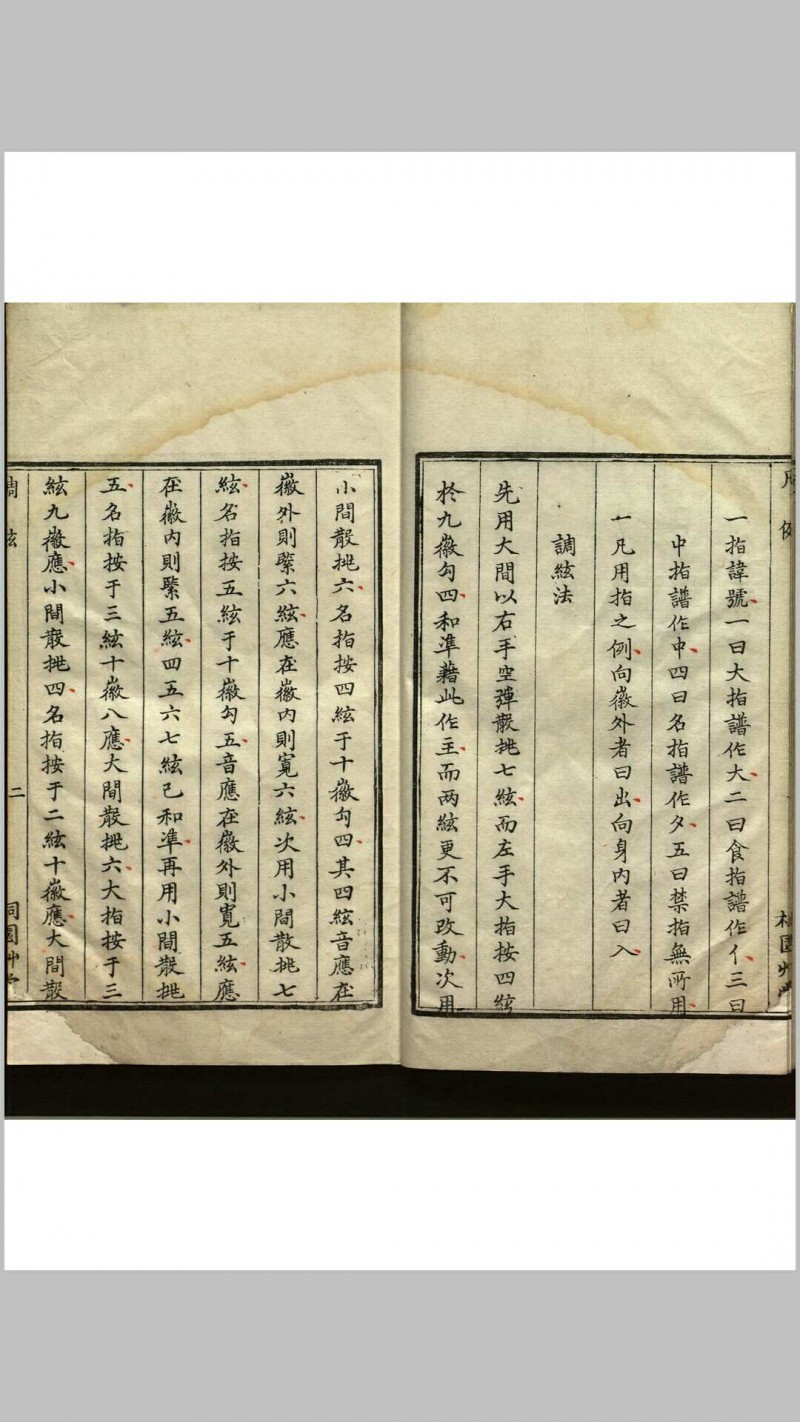 凡例
一指諱號一曰大指譜作大二曰食指譜作亻三曰
中指譜作中四曰名指譜作夕五曰禁指無所用
一凡用指之例向徽外者曰出向身內者曰入
調絃法
先用大間以右手空彈散挑七絃而左手大指按四絃
於九徽勾四和準藉此作主而两絃更不可改動次用
小間散挑六名指按四絃于十徽勾四其四絃音應在
徽外則緊六絃應在徽內則寬六絃次用小間散挑七
絃名指按五絃于十徽勾五音應在徽外則寬五絃應
在徽內則緊五絃四五六七絃已和準再用小間散挑
五名指按于三絃十徽八應大間散挑六大指按于三
絃九徽應小間散挑四名指按于二絃十徽應大間散
調絃
二